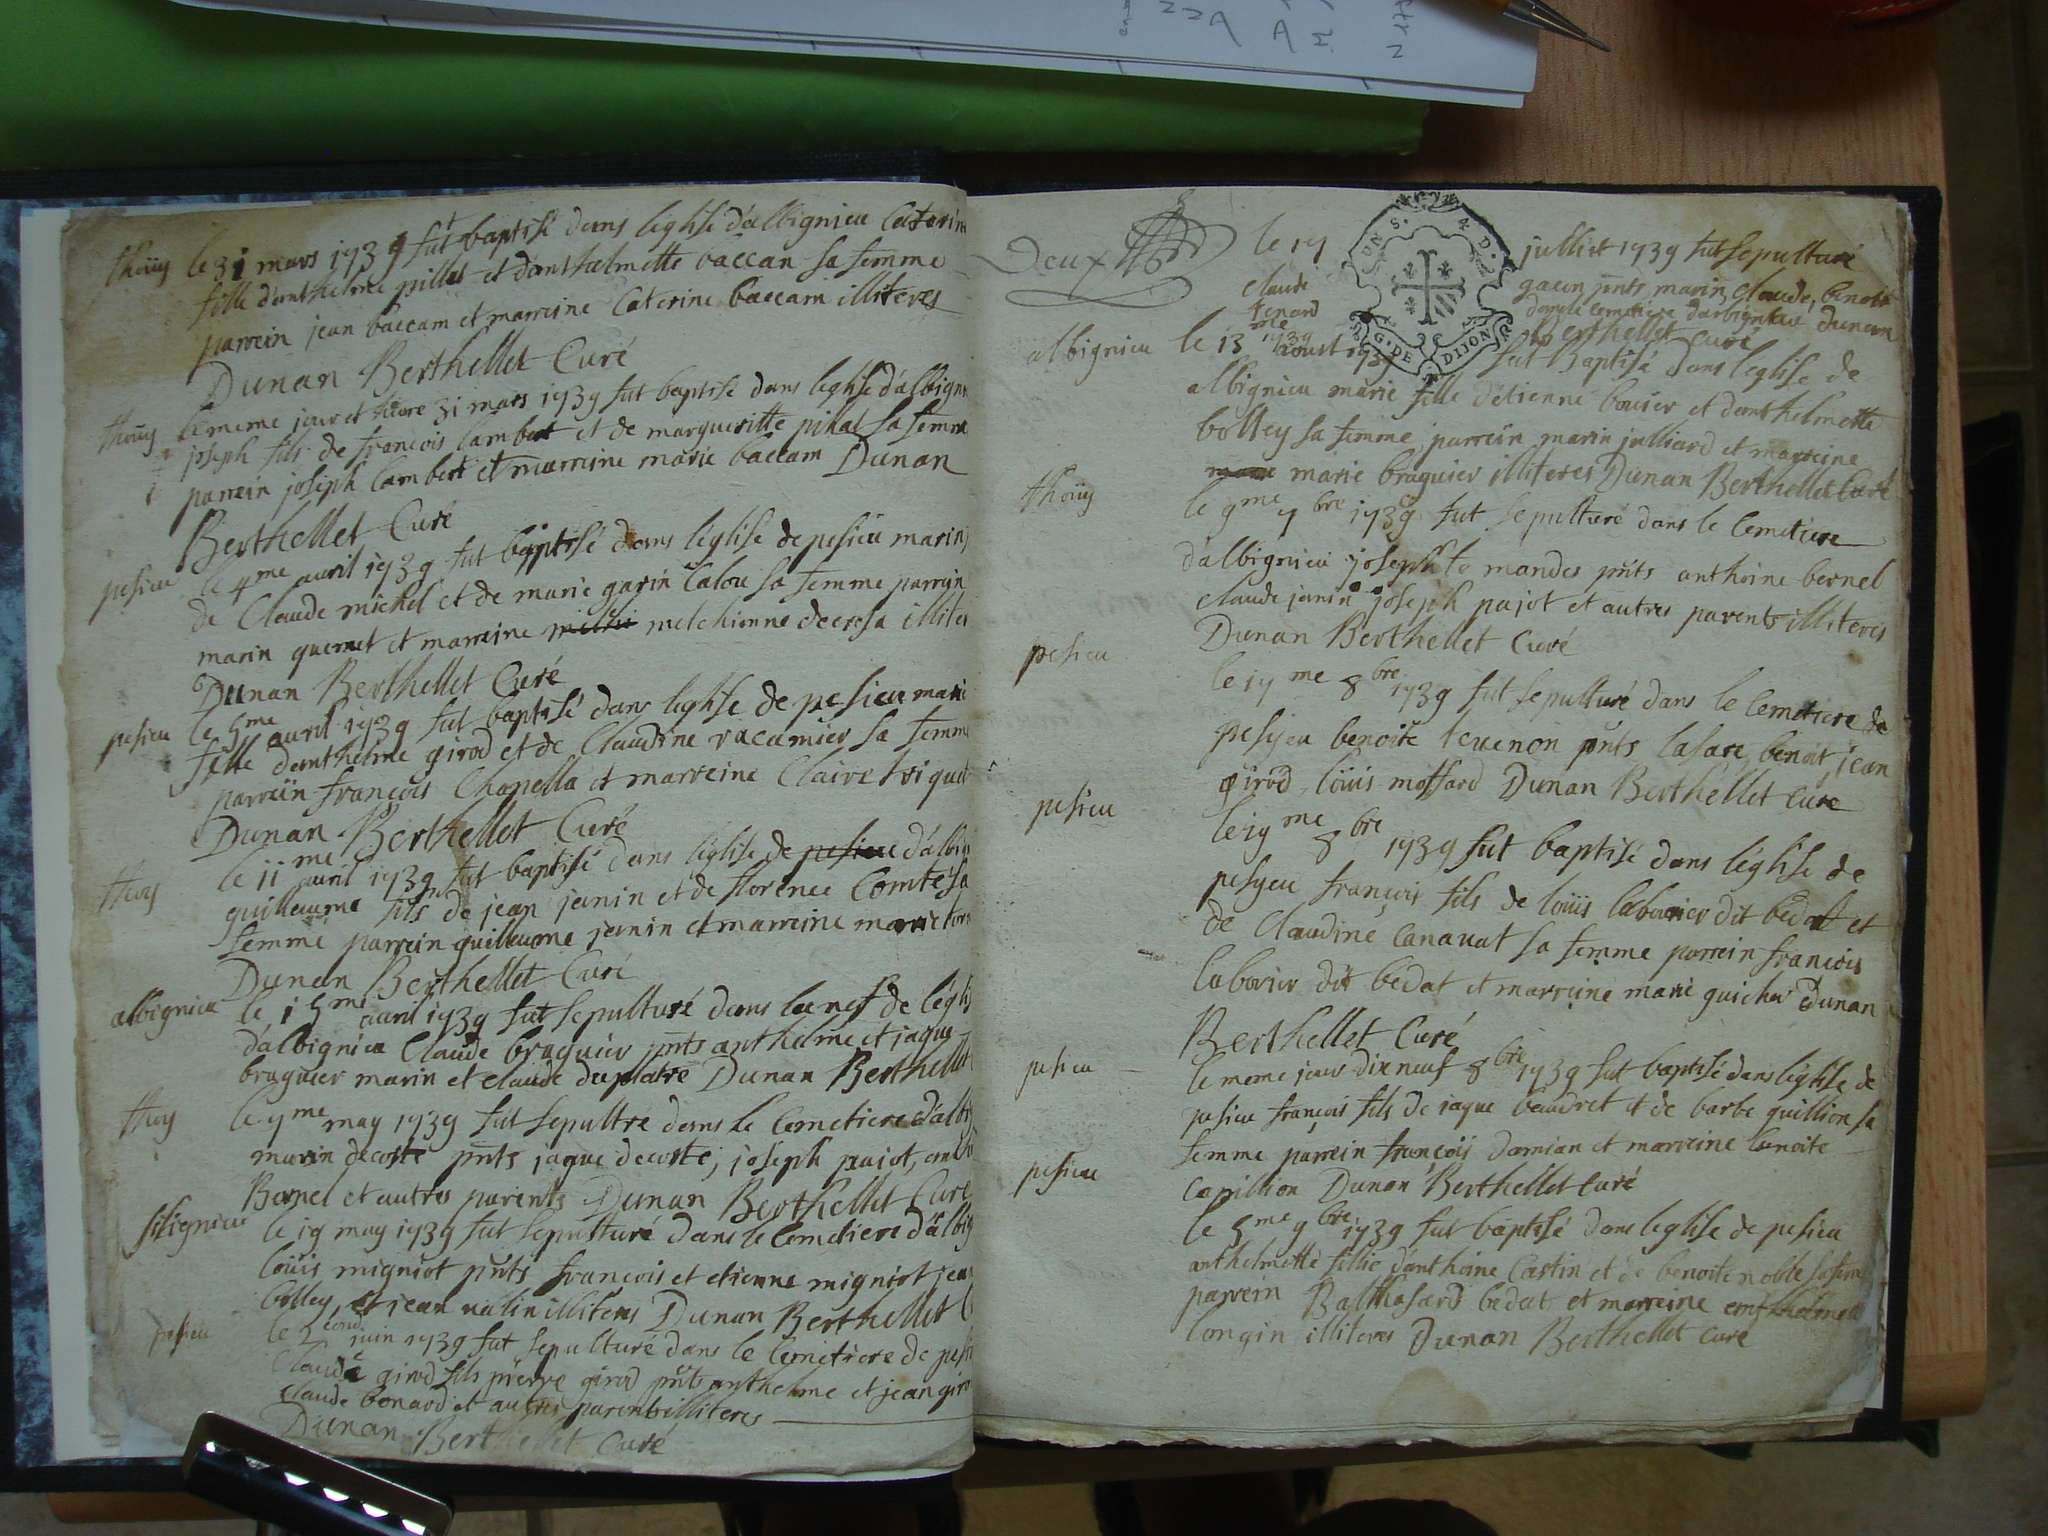 thoüy le 31 mars 1739 fut baptisé dans léglise dalbignieu Caterine
fille danthelme pillet et danthelmette baccan sa femme
parrein jean baccam et marreine Caterine baccam illiteres
Dunan Berthellet Curé
thoüy le meme jour et heure 31 mars 1739 fut baptisé dans léglise dalbignieu
joseph fils de francois lambert et de margueritte pihal sa femme
parrein joseph lambert et marreine marie baccam Dunan
Berthellet Curé
pesieu le 4me avril 1739 fut baptisé dans léglise de pesieu marin
de Claude michel et de marie garin Calou sa femme parrein
marin guernet et marreine melchionne illiter
Dunan Berthellet Curé
pesieu le 5me avril 1739 fut baptisé dans léglise de pesieu marie
fille danthelme girod et de Claudine racamier sa femme
parrein françois Chapella et marreine Claire triquet
Dunan Berthellet Curé
thoy le 11me avril 1739 fut baptisé dans léglise de pesieu dalbig
guilleaume fils de jean janin et de florence Comte sa
femme parrein guilleaume janin et marreine marie
Dunan Berthellet Curé
albignieu le 15me avril 1739 fut sepulturé dans la nef de légli
dalbignieu Claude braguier pnts anthelme et jaque
braguier marin et claude duplatre Dunan Berthellet
thoy le 7me may 1739 fut sepultré dans le Cemetiere dalbi
marin decoste pnts jaque decoste, joseph pajot, anth
Bernel et autres parents Dunan Berthellet Curé
silignieu le 19 may 1739 fut sepulturé dans le Cemetiere dalbig
loüis migniot pnts francois et etienne migniot jean
bolley, et jean valin illiteres Dunan Berthellet C
pesieu le 2cond juin 1739 fut sepulturé dans le Cemetiere de pesi
Claude girod fils pierre girod pnts anthelme et jean giro
claude bonard et autres parents illiteres
Dunan Berthellet Curé
Deux le 17 julliet 1739 fut sepulturé
claude tenard pnts marin, claude, benoit
cemetiere dalbignieu Dunan
Berthellet curé
GEN. DE DIJON
albignieu le 13me aoust 1739 fut Baptisé dans leglise de
albignieu marie fille détienne bouvier et danthelmette
bolley sa femme, parrein marin julliard et marreine
marie braguier illiteres Dunan Berthellet Curé
thoüy le 9me 7bre 1739 fut sepulturé dans le Cemetiere
dalbignieu joseph lo mandes pnts anthoine bernel
claude janin joseph pajot et autres parents illiteres
Dunan Berthellet Curé
pesieu le 17me 8bre 1739 fut sepulturé dans le Cemetiere de
pesyeu benoite teuenon pnts lasare, benoit, jean
girod, loüis mossard Dunan Berthéllet Curé
pesieu le 19me 8bre 1739 fut baptisé dans léglise de
pesyeu françois fils de loüis laborier dit bedat et
de Claudine Canavat sa femme parrein françois
laborier dit bedat et marreine marie guicher Dunan
Berthellet Curé
pesieu le meme jour dix neuf 8bre 1739 fut baptisé dans léglise de
pesieu françois fils de jaque beudret et de barbe quillion sa
femme parrein françois damian et marreine benoite
capillion Dunan Berthellet Curé
pesieu le 5me 9bre 1739 fut baptisé dans leglise de pesieu
anthelmette fillie danthoine Castin et de benoite noble sa feme
parrein Balthasard bedat et marreine enthelmet
longin illiteres Dunan Berthellet Curé